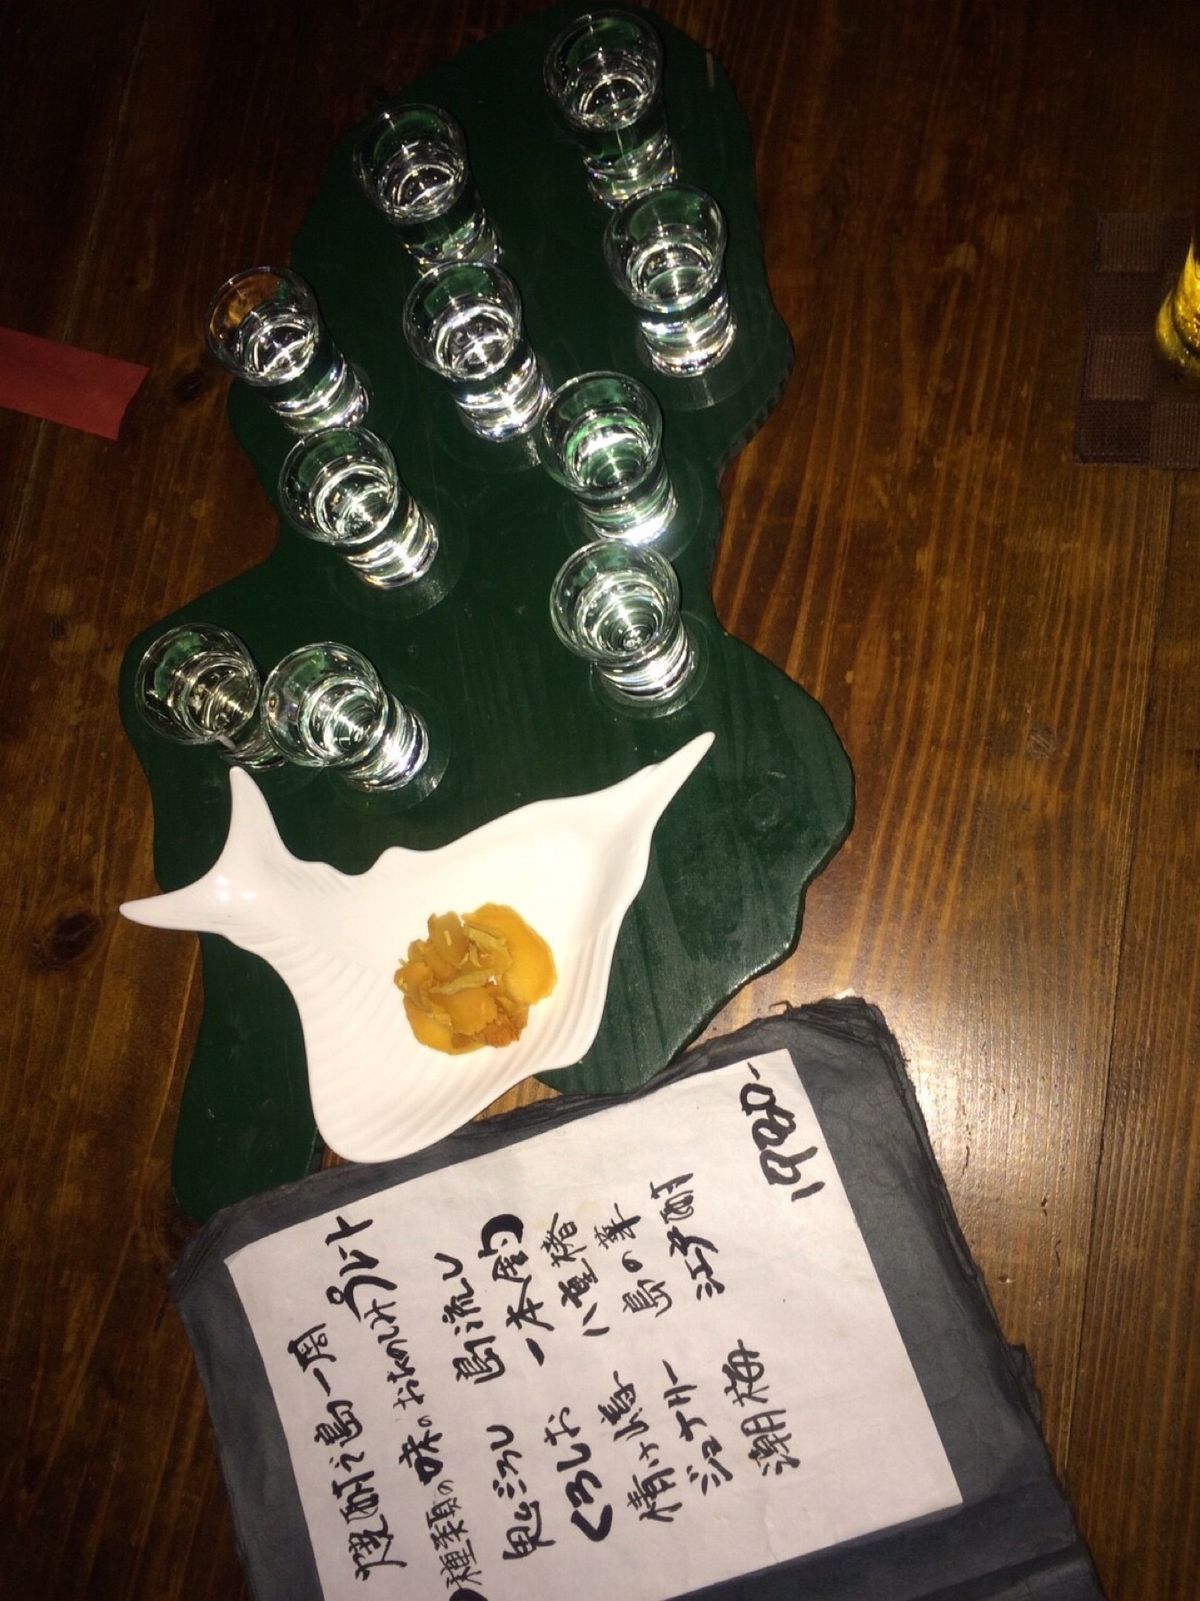 焼酎で島一周 プレート
種類の味のおたのしみ
鬼ごろし 島流し
くろしお 一本釣り
情け嶋 八重椿
ジョナリー 島の華
潮梅 江戸酎
1980-